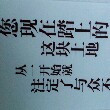 您现在踏上的
这块土地
从一开始就
注定了与众不